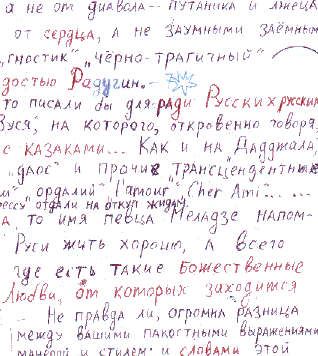 а не от диавола – путаника и лжеца
от сердца, а не заумными заёмными
„гностик" „чёрно-трагичный"
достью Радугин. –
то писали бы для-ради Русских
Зуся, на которого, откровенно говоря,
с казаками... Как и на Дадджала,
„даос" и прочие „трансцендентные
ордалий" „l'amour" „Cher Ami"... ...
рессу" отдали на откуп жидку.
а, то имя певца Меладзе напом-
Руси жить хорошо, а всего
где есть такие Божественные
Любви, от которых заходится
– Не правда ли, огромна разница
между вашими пакостными выражениями
манерой и стилем и словами этой